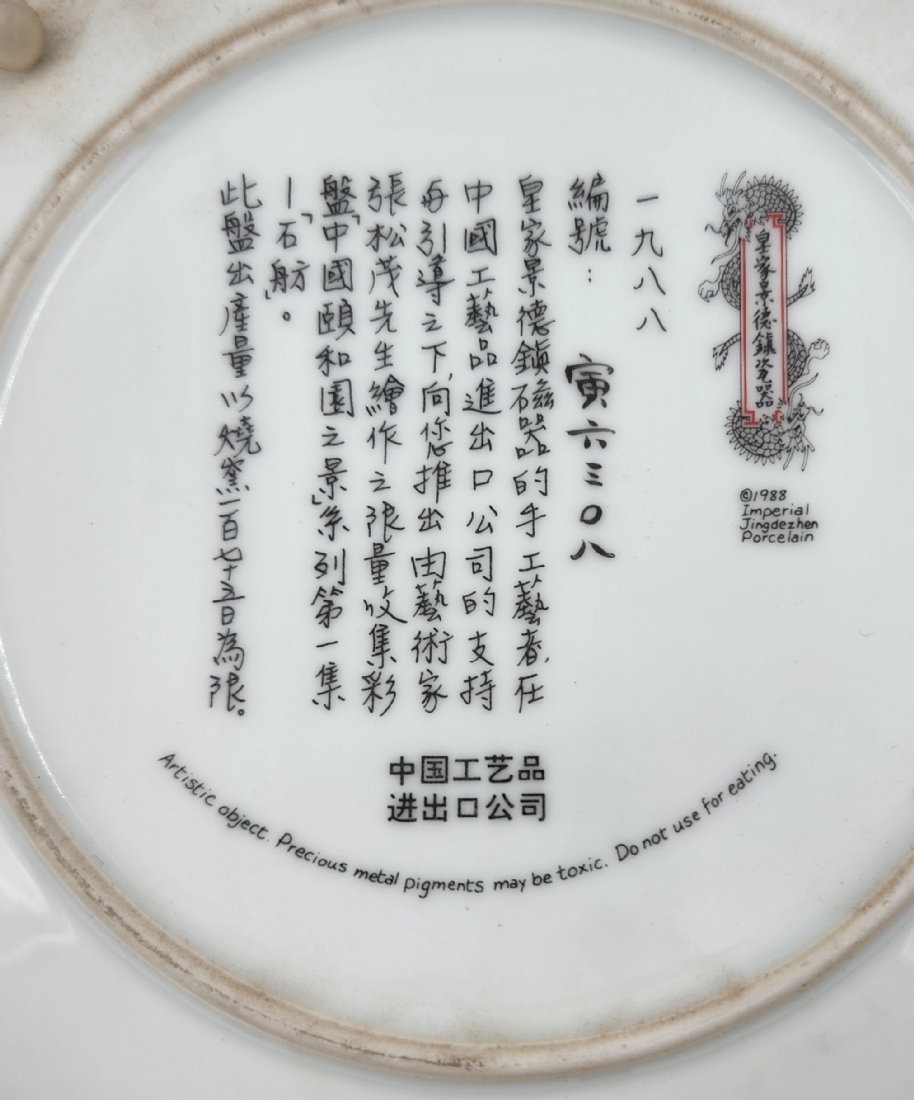 皇家景德鎮瓷器
©1988
Imperial
Jingdezhen
Porcelain
一九八八
編號： 寅六三〇八
皇家景德鎮磁器的手工藝者，在
中國工藝品進出口公司的支持
与引導之下，向您推出由藝術家
張松茂先生繪作之限量收集彩
盤「中國頤和園之景」系列第一集
—「石舫」。
此盤出產量以燒窯一百七十五日為限。
中国工艺品
进出口公司
Artistic object. Precious metal pigments may be toxic. Do not use for eating.